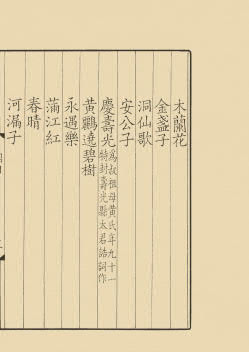 木蘭花
金盞子
洞仙歌
安公子
慶壽光爲叔祖母黃氏年九十一
特封壽光縣太君誥詞作
黃鸝遶碧樹
永遇樂
蒲江紅
春晴
河漏子